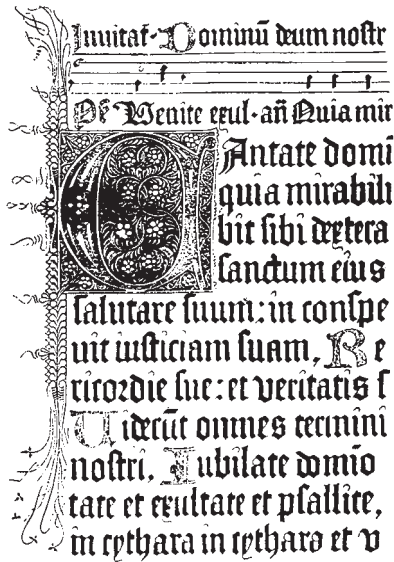 Inuitat· Dominū deum noſtr
Pſ Venite exul· an̄ Quia mir
CAntate domi
quia mirabili
bit ſibi dextera
ſanctum eius
ſalutare ſuum: in conſpe
uit iuſticiam ſuam, Re
ricordie ſue: et veritatis ſ
Uiderūt omnes termini
noſtri, Iubilate domīo
tate et exultate et pſallite,
in cythara in cythara et v